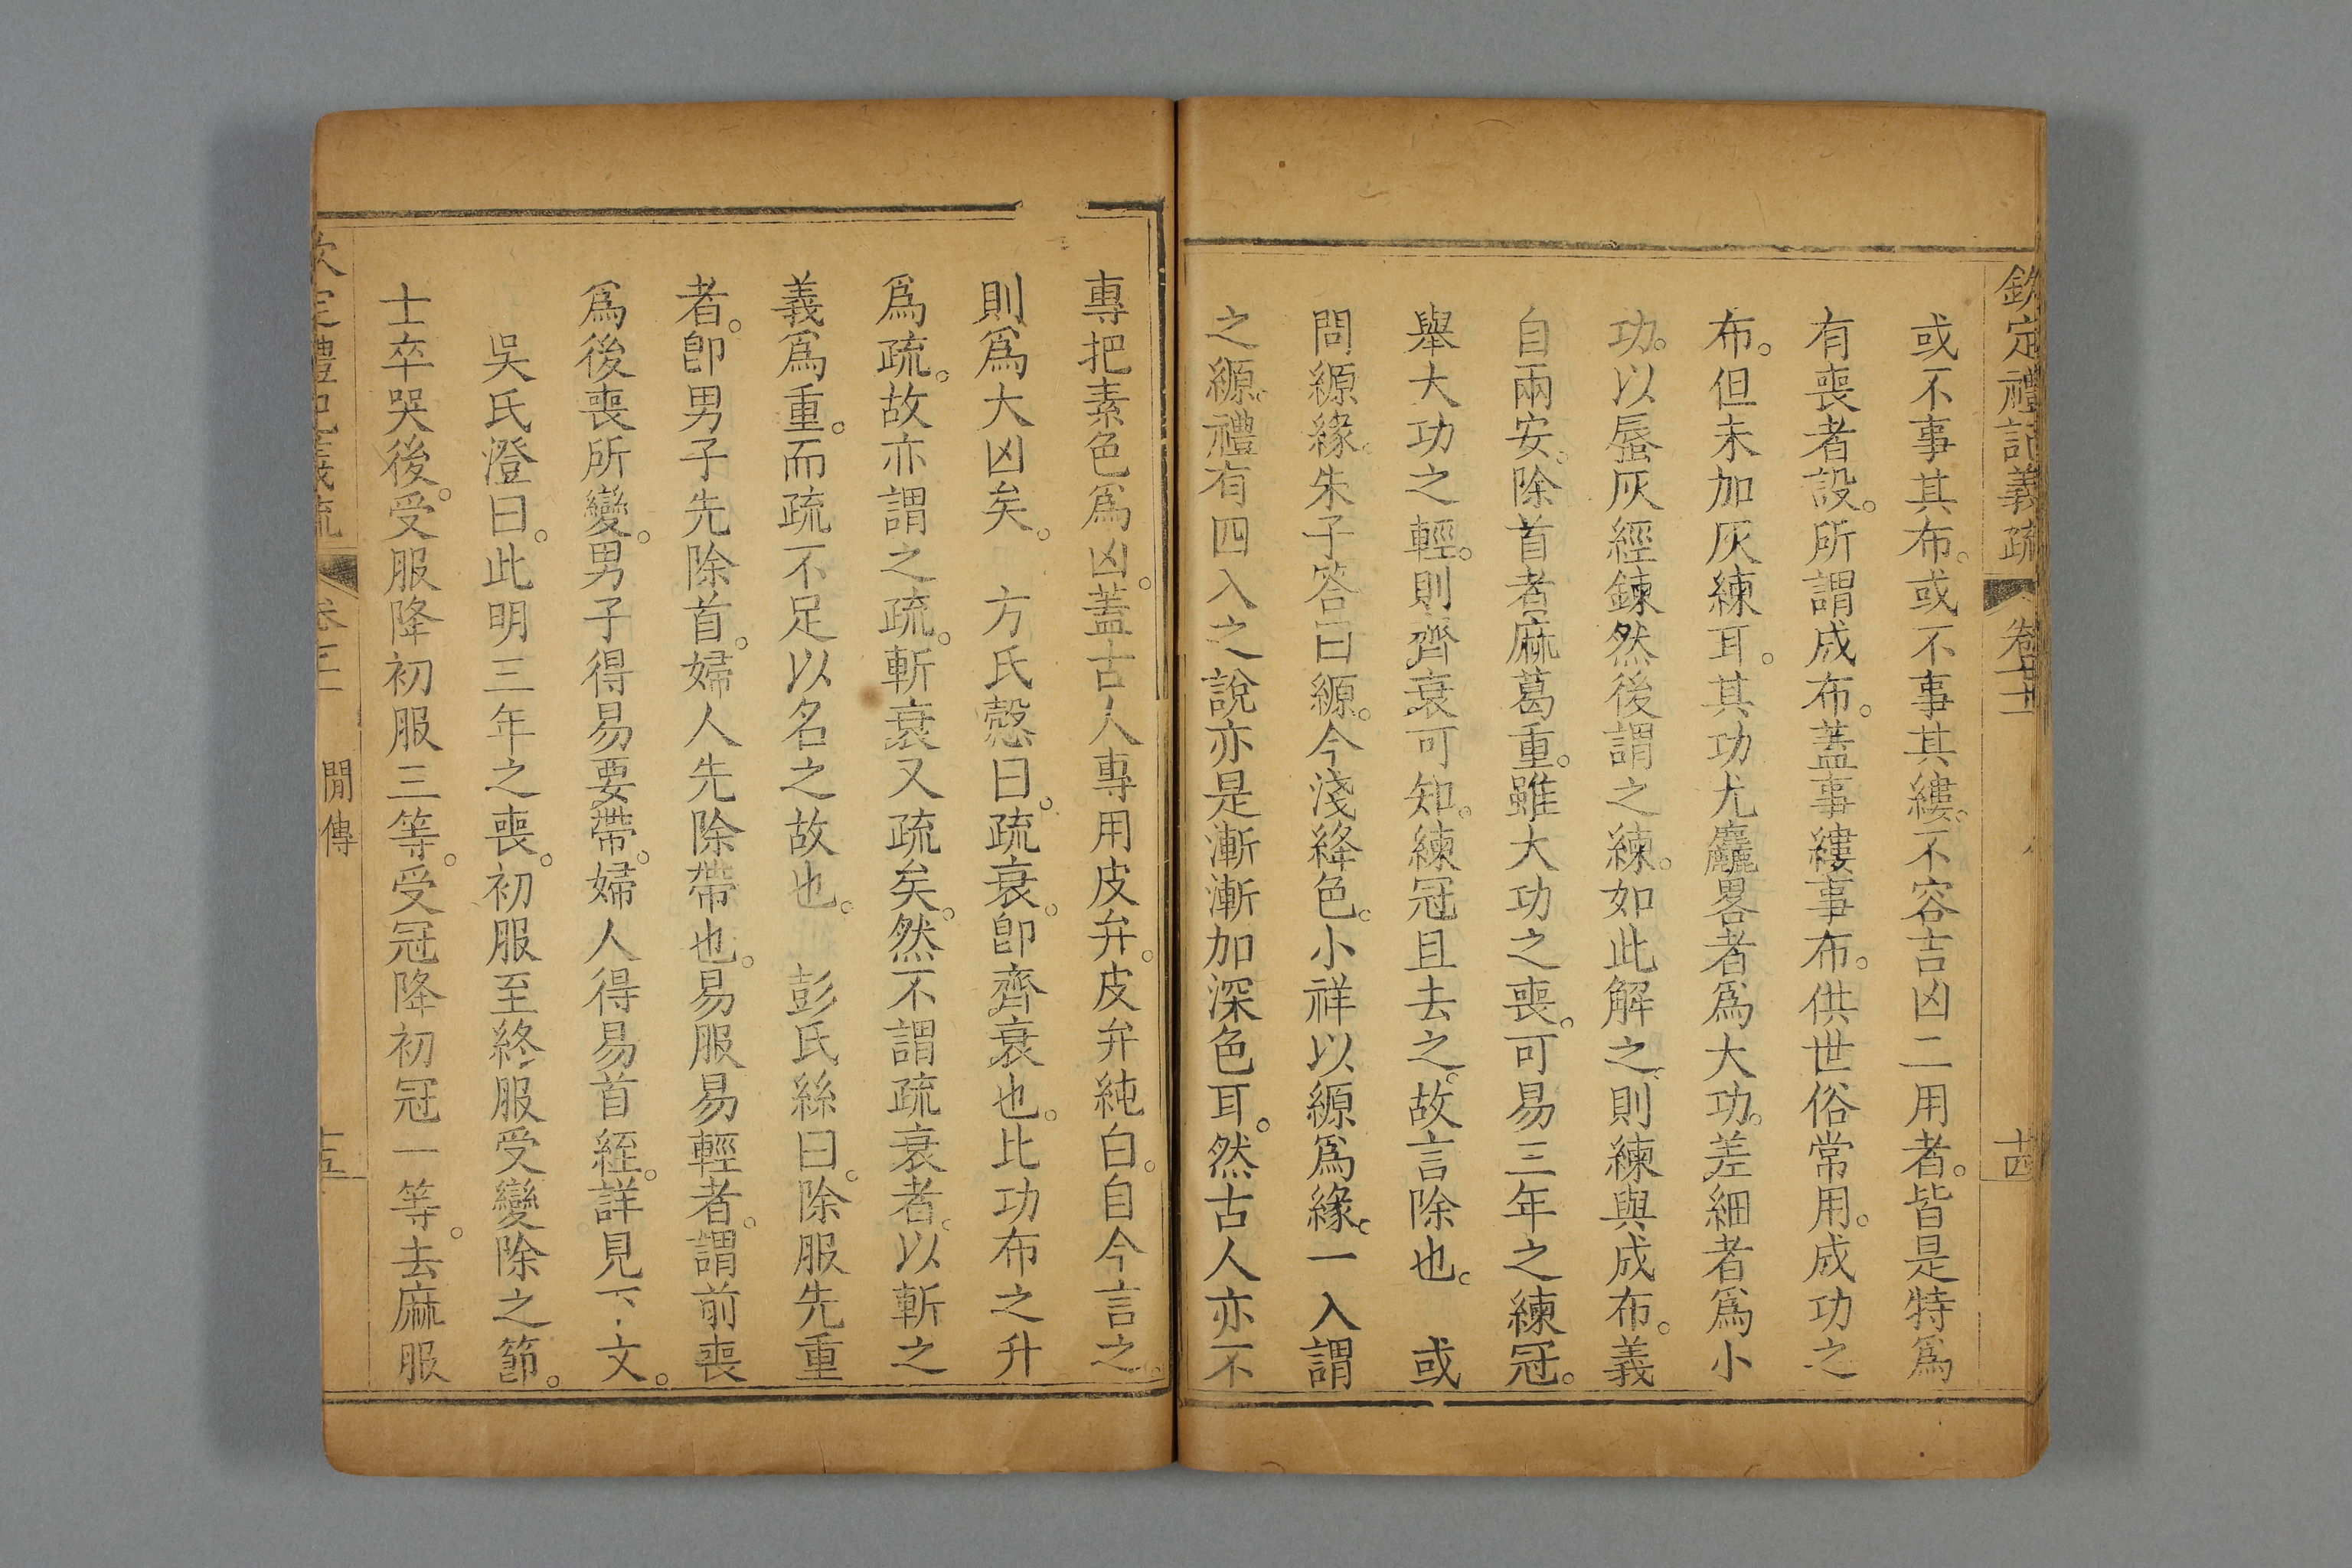 欽定禮記義疏
十四
或不事其布。或不事其縷。不容吉凶二用者。皆是特爲
有喪者設。所謂成布。蓋事縷事布。供世俗常用。成功之
布。但未加灰練耳。其功尤麤畧者爲大功。差細者爲小
功。以蜃灰經鍊然後謂之練。如此解之。則練與成布。義
自兩安。除首者麻葛重。雖大功之喪。可易三年之練冠。
舉大功之輕。則齊衰可知。練冠且去之。故言除也。　或
問縓緣。朱子答曰縓。今淺絳色。小祥以縓爲緣。一入謂
之縓。禮有四入之說亦是漸漸加深色耳。然古人亦不
專把素色爲凶。蓋古人專用皮弁。皮弁純白。自今言之。
則爲大凶矣。　方氏慤曰。疏衰。卽齊衰也。比功布之升
爲疏。故亦謂之疏。斬衰又疏矣。然不謂疏衰者。以斬之
義爲重。而疏不足以名之故也。　彭氏絲曰。除服先重
者。卽男子先除首。婦人先除帶也。易服易輕者。謂前喪
爲後喪所變。男子得易要帶。婦人得易首絰。詳見下文。
吳氏澄曰。此明三年之喪。初服至終服受變除之節。
士卒哭後。受服降初服三等。受冠降初冠一等。去麻服
間傳